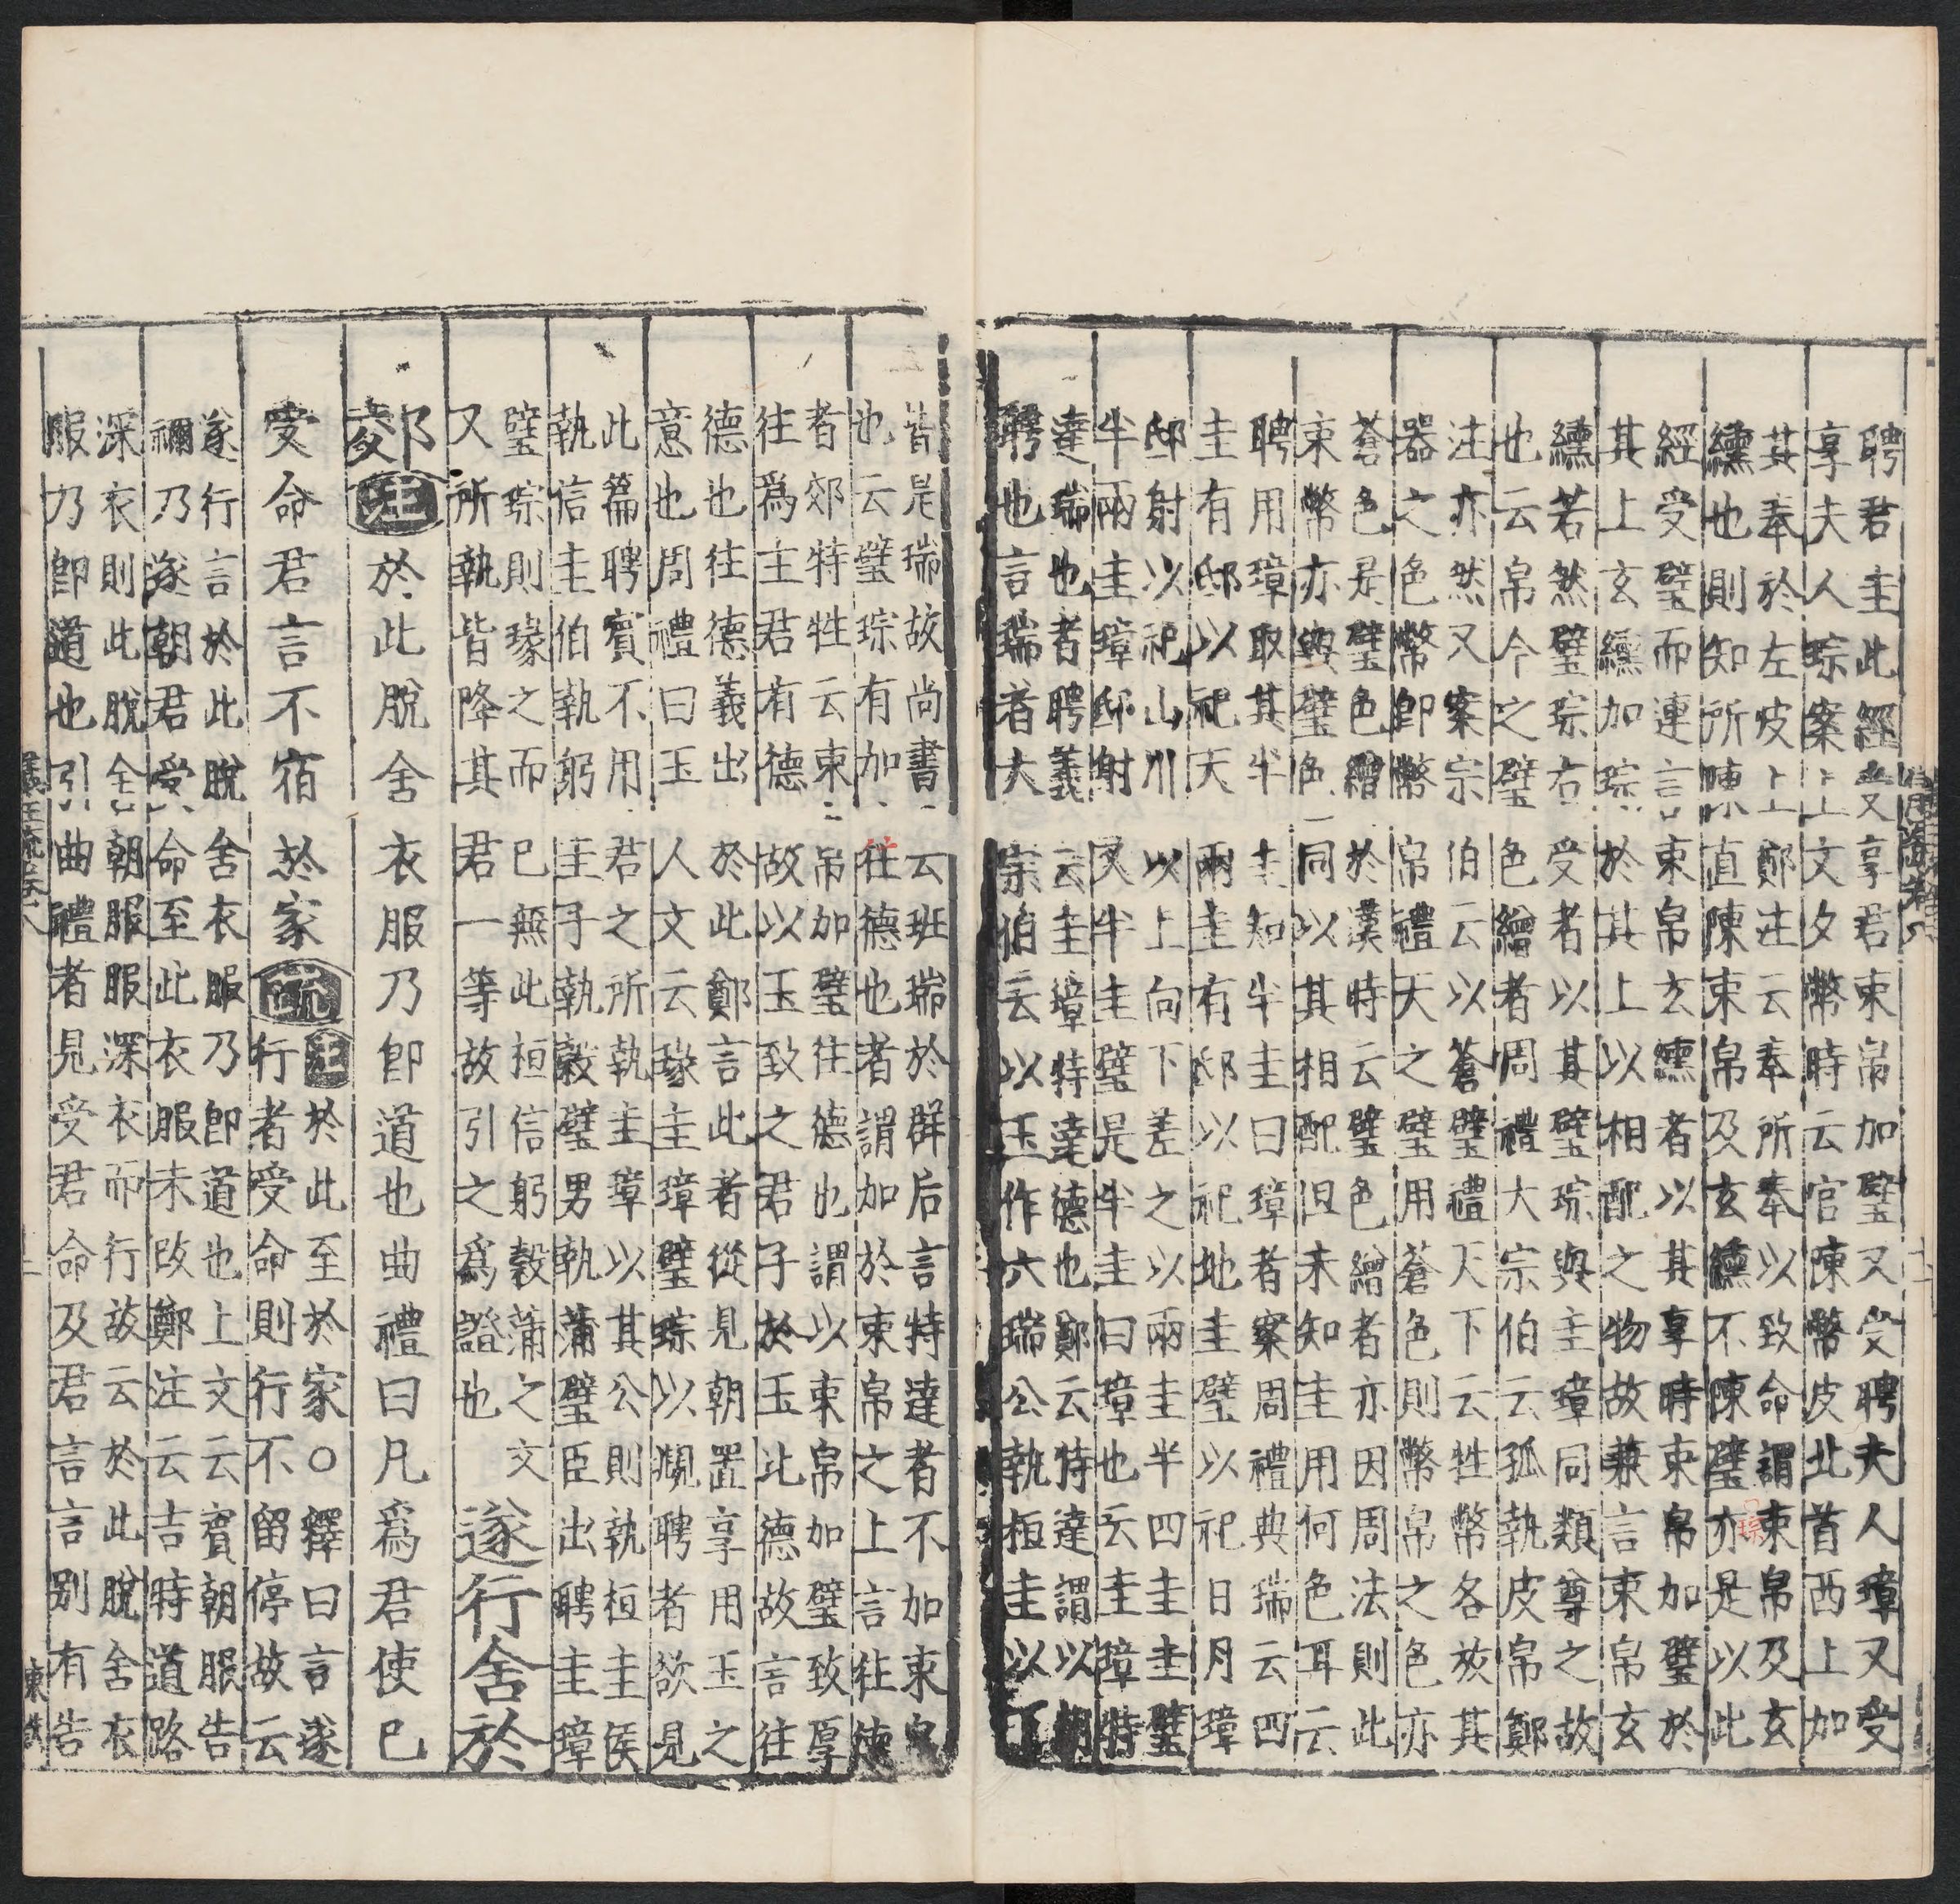 聘君圭此經受享君束帛加璧又受聘夫人璋又受
享夫人琮案上文夕幣時云官陳幣皮北首西上加
其奉於左皮上鄭注云奉所奉以致命謂束帛及玄
纁也則知所陳直陳束帛及玄纁不陳璧亦是以此
琮
經受璧而連言束帛玄纁者以其享時束帛加璧於
其上玄纁加琮於其上以相配之物故兼言束帛玄
纁若然璧琮右受者以其璧琮與圭璋同類尊之故
也云帛今之璧色繒者周禮大宗伯云孤執皮帛鄭
注亦然又案宗伯云以蒼璧禮天下云牲幣各放其
器之色幣卽幣帛禮天之璧用蒼色則幣帛之色亦
蒼色是璧色繒於漢時云璧色繒者亦因周法則此
束幣亦與璧色同以其相配但未知圭用何色耳云
聘用璋取其半圭知半圭曰璋者案周禮典瑞云四
圭有邸以祀天兩圭有邸以祀地圭璧以祀日月璋
邸射以祀山川以上向下差之以兩圭半四圭圭璧
半兩圭璋邸射又半圭璧是半圭曰璋也云圭璋特
達瑞也者聘義云圭璋特達德也鄭云特達謂以朝
聘也言瑞者大宗伯云以玉作六瑞公執桓圭以下
皆是瑞故尚書云班瑞於群后言特達者不加束帛
也云璧琮有加往德也者謂加於束帛之上言往德
往
者郊特牲云束帛加璧往德也謂以束帛加璧致厚
往爲主君有德故以玉致之君子於玉比德故言往
德也往德義出於此鄭言此者從見朝罷享用玉之
意也周禮曰玉人文云瑑圭璋璧琮以覜聘者欲見
此篇聘賓不用君之所執圭璋以其公則執桓圭侯
執信圭伯執躬圭子執穀璧男執蒲璧臣出聘圭璋
璧琮則瑑之而已無此桓信躬穀蒲之文
又所執皆降其君一等故引之爲證也 遂行舍於
郊注於此脫舍衣服乃卽道也曲禮曰凡爲君使已
受命君言不宿於家疏注於此至於家○釋曰言遂
行者受命則行不留停故云
遂行言於此脫舍衣服乃卽道也上文云賓朝服告
禰乃遂朝君受命至此衣服未改鄭注云吉時道路
深衣則此脫舍朝服服深衣而行故云於此脫舍衣
服乃卽道也引曲禮者見受君命及君言言別有告